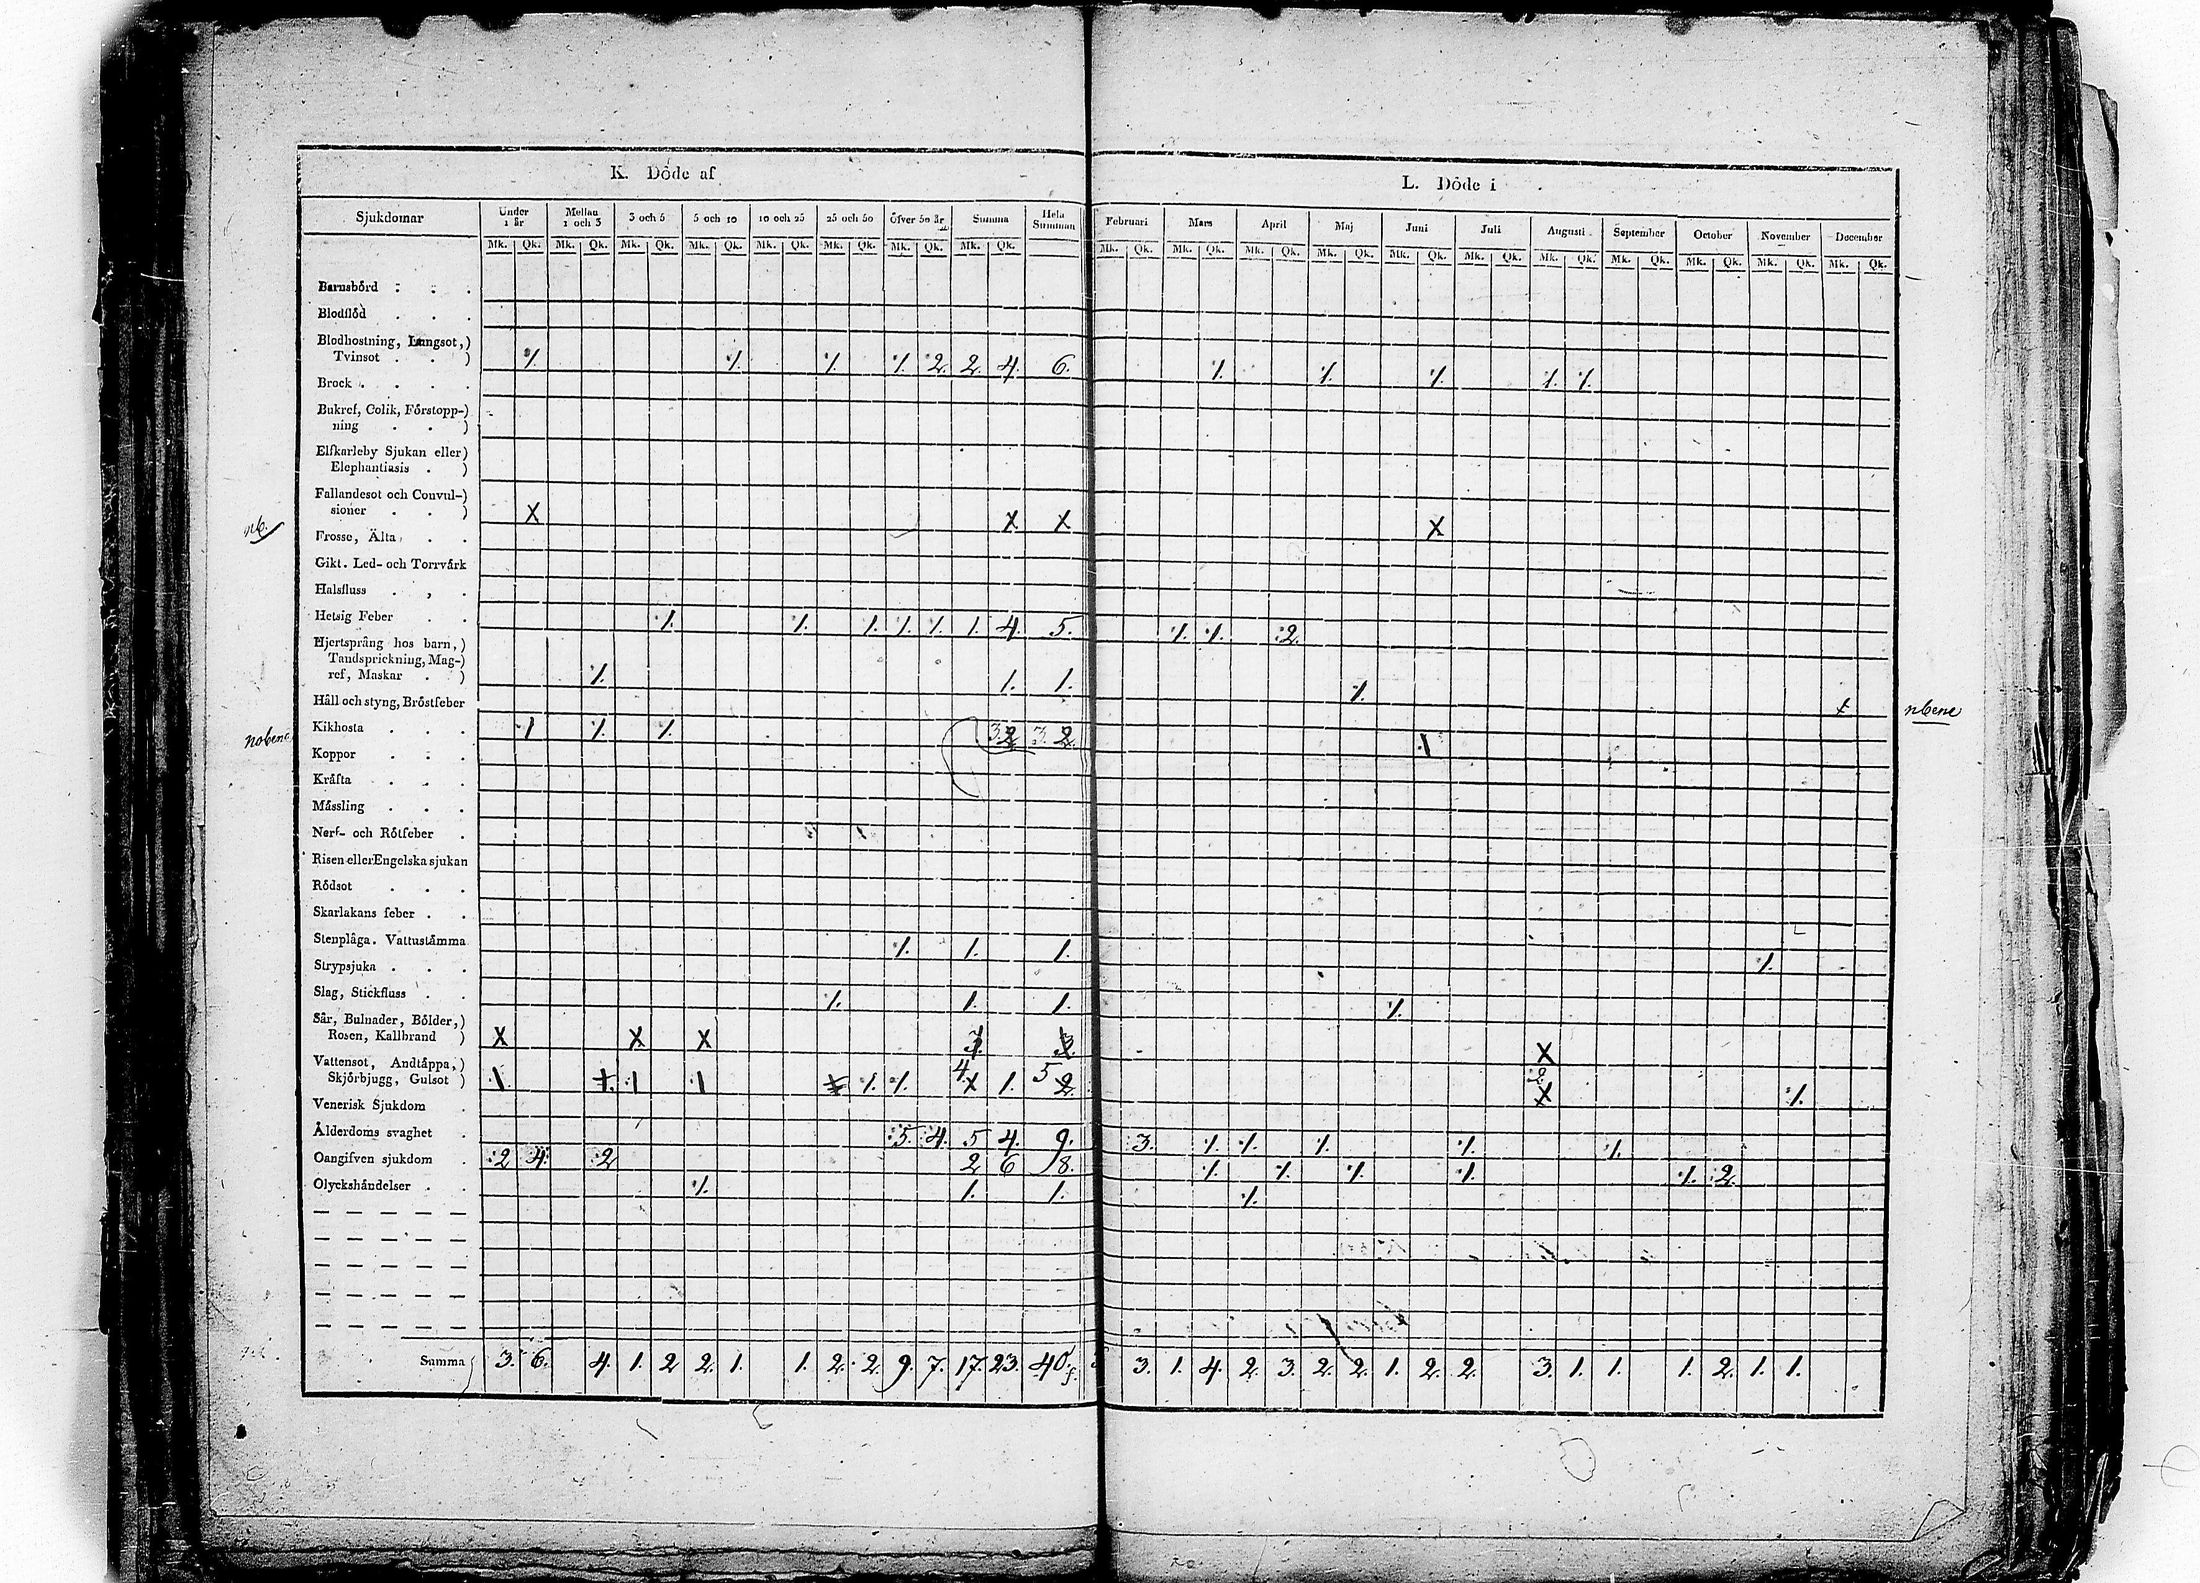 K. Döde af
L. Döde i
Sjukdomar Under 1 år Mellan 1 och 3 3 och 5 5 och 10 10 och 25 25 och 50 Öfver 50 år Summa Hela Summan
Mk. Qk. Mk. Qk. Mk. Qk. Mk. Qk. Mk. Qk. Mk. Qk. Mk. Qk. Mk. Qk.
Februari Mars April Maj Juni Juli Augusti September October November December
Mk. Qk. Mk. Qk. Mk. Qk. Mk. Qk. Mk. Qk. Mk. Qk. Mk. Qk. Mk. Qk. Mk. Qk. Mk. Qk. Mk. Qk.
Barnsbörd . . .
Blodflöd . . .
Blodhostning, Lungsot,)
Tvinsot . . ) 1. 1. 1. 1. 2. 2. 4. 6. 1. 1. 1. 1. 1.
Brock . . . .
Bukref, Colik, Förstopp-)
ning . . )
Elfkarleby Sjukan eller)
Elephantiasis . )
Fallandesot och Convul-)
sioner . . ) X X X X
Frosse, Älta . .
Gikt. Led- och Torrvärk
Halsfluss . , .
Hetsig Feber . . 1. 1. 1. 1. 1. 1. 4. 5. 1. 1. 2.
Hjertsprång hos barn,)
Tandsprickning, Mag-)
ref, Maskar . ) 1. 1. 1. 1.
Håll och styng, Bröstfeber
Kikhosta . . . 1 1. 1. 3. 2. 3. 2. 1
Koppor . . .
Kräfta . . .
Mässling . . .
Nerf- och Rötfeber .
Risen eller Engelska sjukan
Rödsot . . .
Skarlakans feber . .
Stenplåga. Vattustämma 1. 1. 1. 1.
Strypsjuka . . .
Slag, Stickfluss . . 1. 1. 1. 1.
Sår, Bulnader, Bölder,)
Rosen, Kallbrand ) X X X 3. 3. X
Vattensot, Andtäppa,)
Skjörbjugg, Gulsot ) 1. 1. 1 1 1. 1. 4. 1. 5 2. X 1.
Venerisk Sjukdom .
Ålderdoms svaghet . 5. 4. 5 4. 9. 3. 1. 1. 1. 1. 1.
Oangifven sjukdom . 2 4. 2 2 6 8. 1. 1. 1. 1. 1. 2.
Olyckshändelser . . 1. 1. 1. 1.
Summa 3. 6. 4. 1. 2 2. 1. 1. 2. 2. 9. 7. 17. 23. 40. 3. 1. 4. 2. 3. 2. 2. 1. 2. 2. 3. 1. 1. 1. 2. 1. 1.